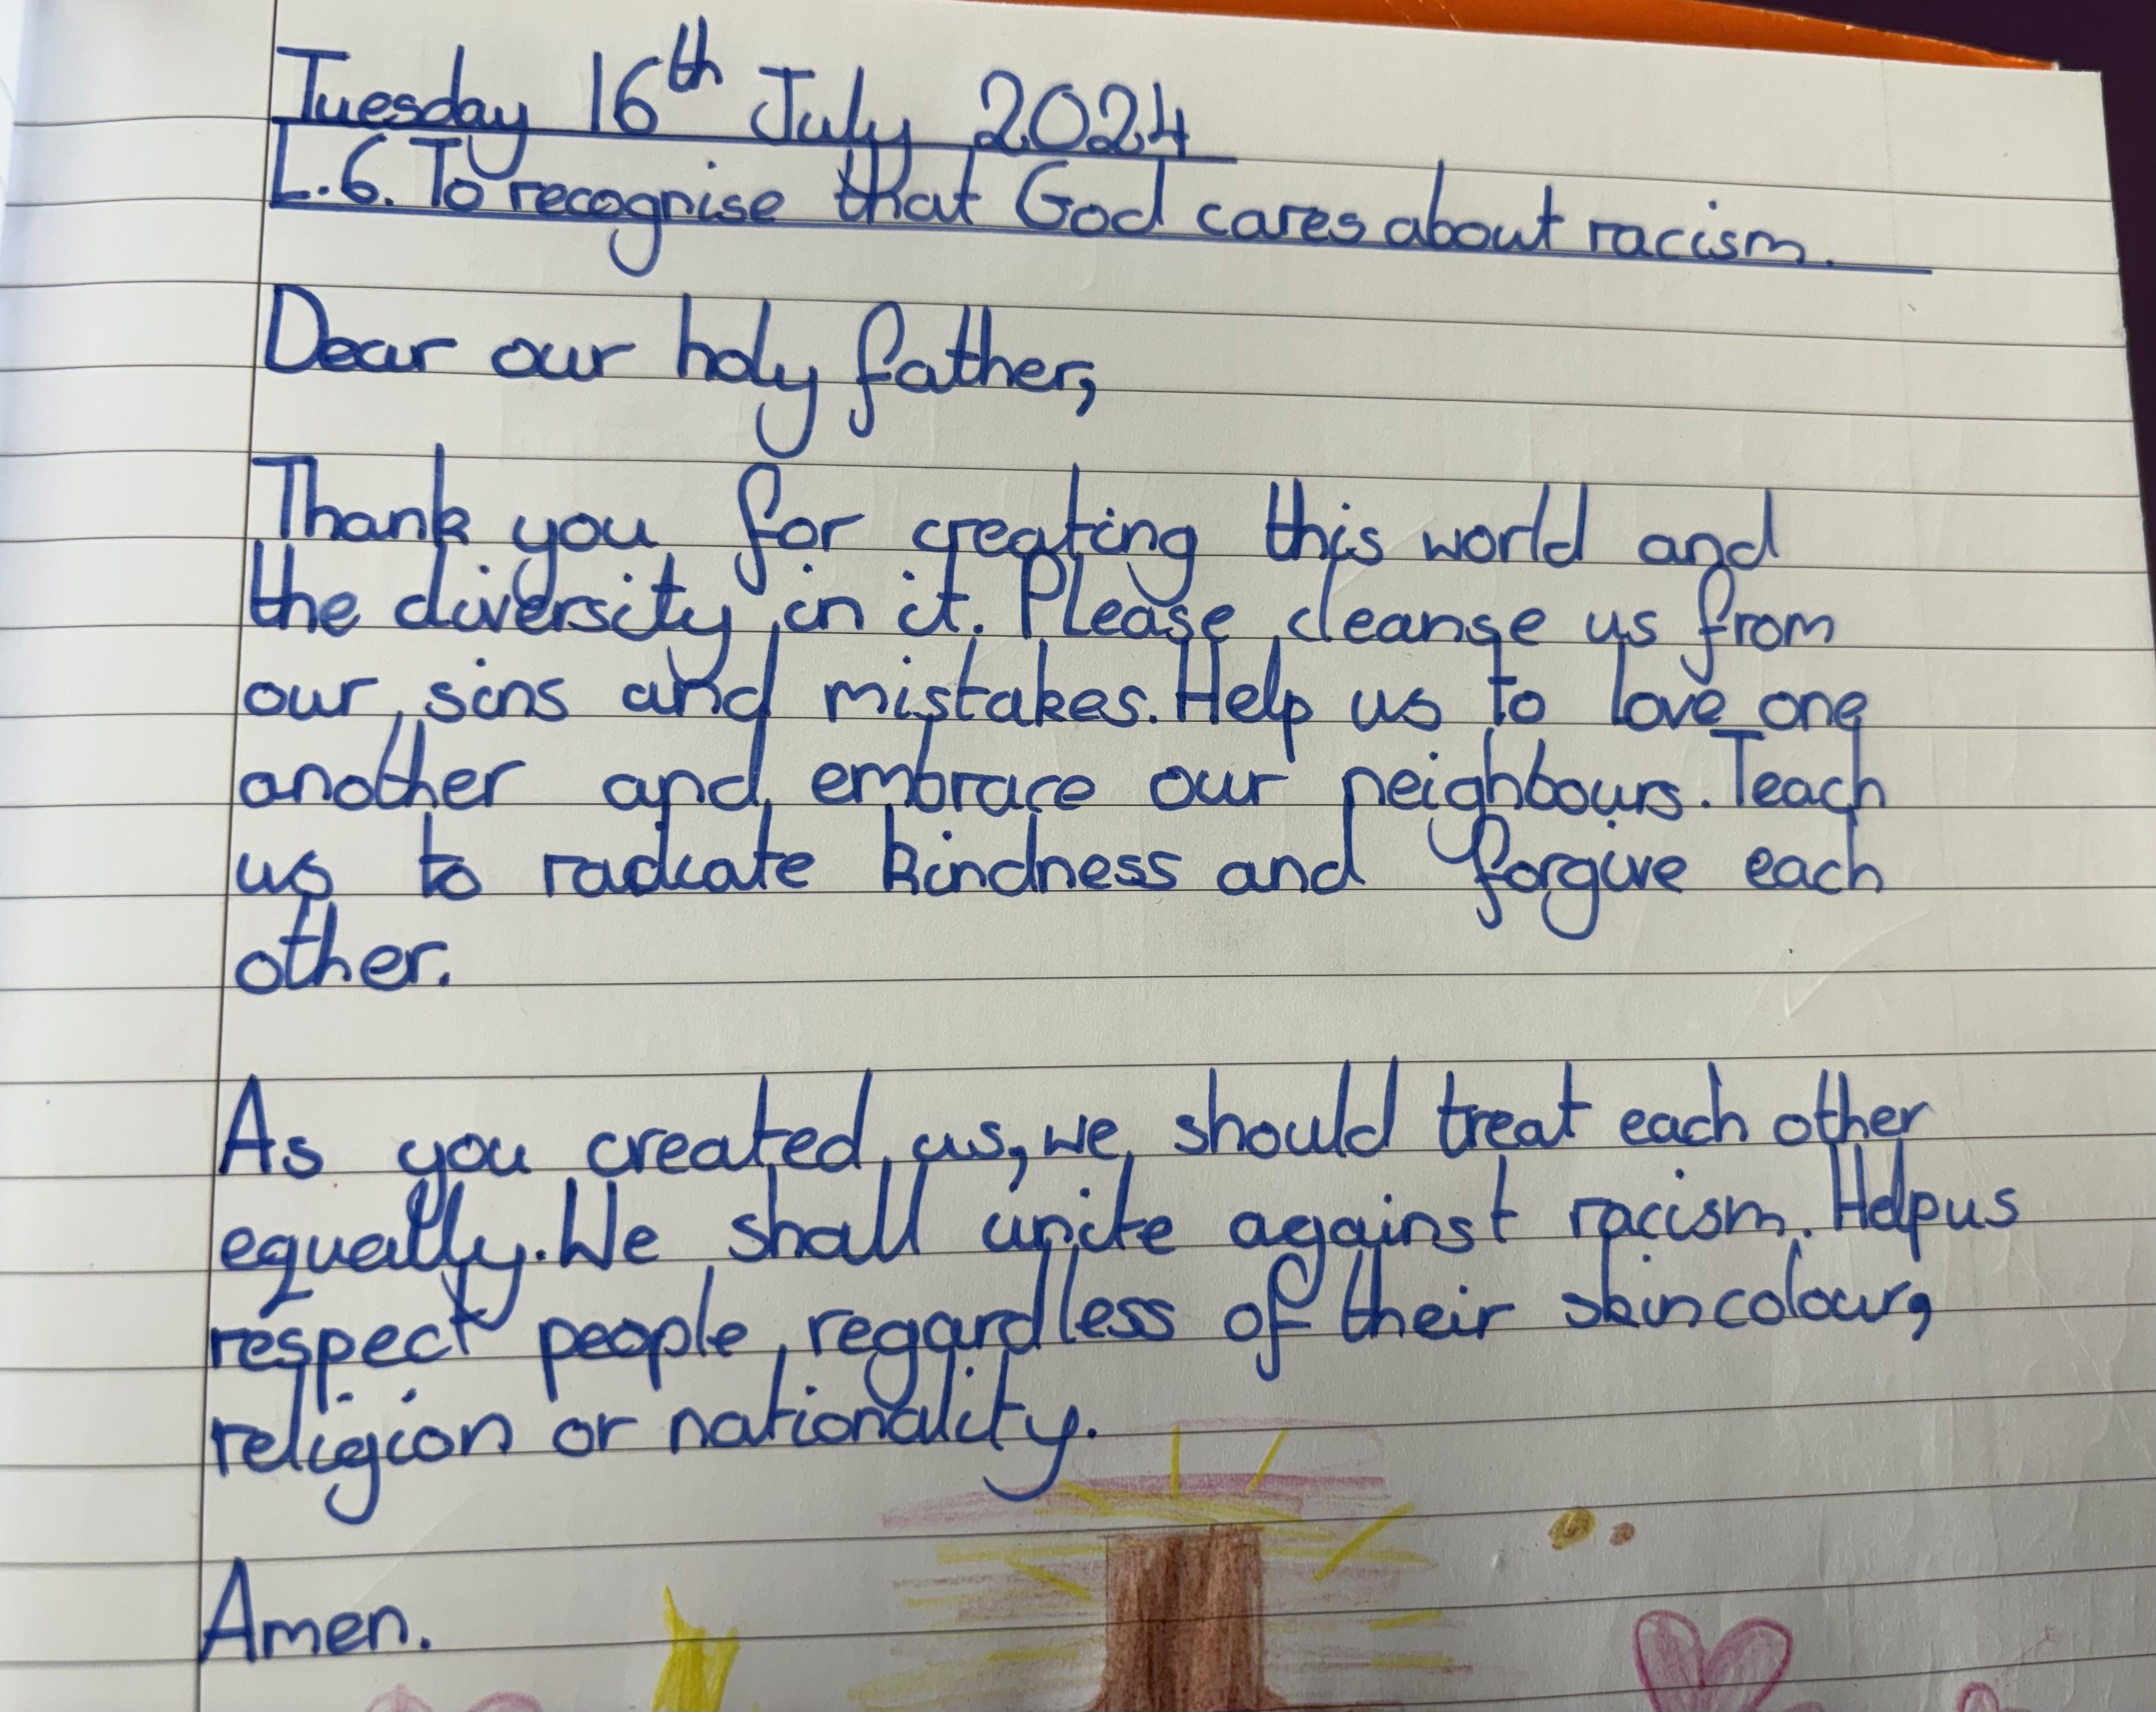 Tuesday 16th July 2024
L.6. To recognise that God cares about racism.
Dear our holy father,
Thank you for creating this world and
the diversity in it. Please cleanse us from
our sins and mistakes. Help us to love one
another and embrace our neighbours. Teach
us to radiate kindness and forgive each
other.
As you created us, we should treat each other
equally. We shall unite against racism. Help us
respect people regardless of their skin colour,
religion or nationality.
Amen.